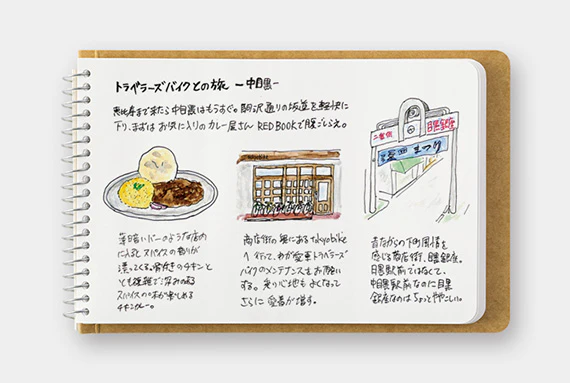 トラベラーズバイクとの旅 －中目黒－
恵比寿まで来たら中目黒はもうすぐ。駒沢通りの坂道を軽快に
下り、まずはお気に入りのカレー屋さん RED BOOKで腹ごしらえ。
二番街
目黒銀座
まつり
薄暗いバーのような店内
に入るとスパイスの香りが
漂ってくる。骨付きのチキンと
とても複雑で深みのある
スパイスの味が楽しめる
チキンカレー。
商店街の奥にあるtokyobike
へ行って、わが愛車トラベラーズ
バイクのメンテナンスもお願い
する。走り心地もよくなって
さらに愛着が増す。
昔ながらの下町風情を
感じる商店街、目黒銀座。
目黒駅前ではなくて、
中目黒駅前なのに目黒
銀座なのはちょっとややこしい。